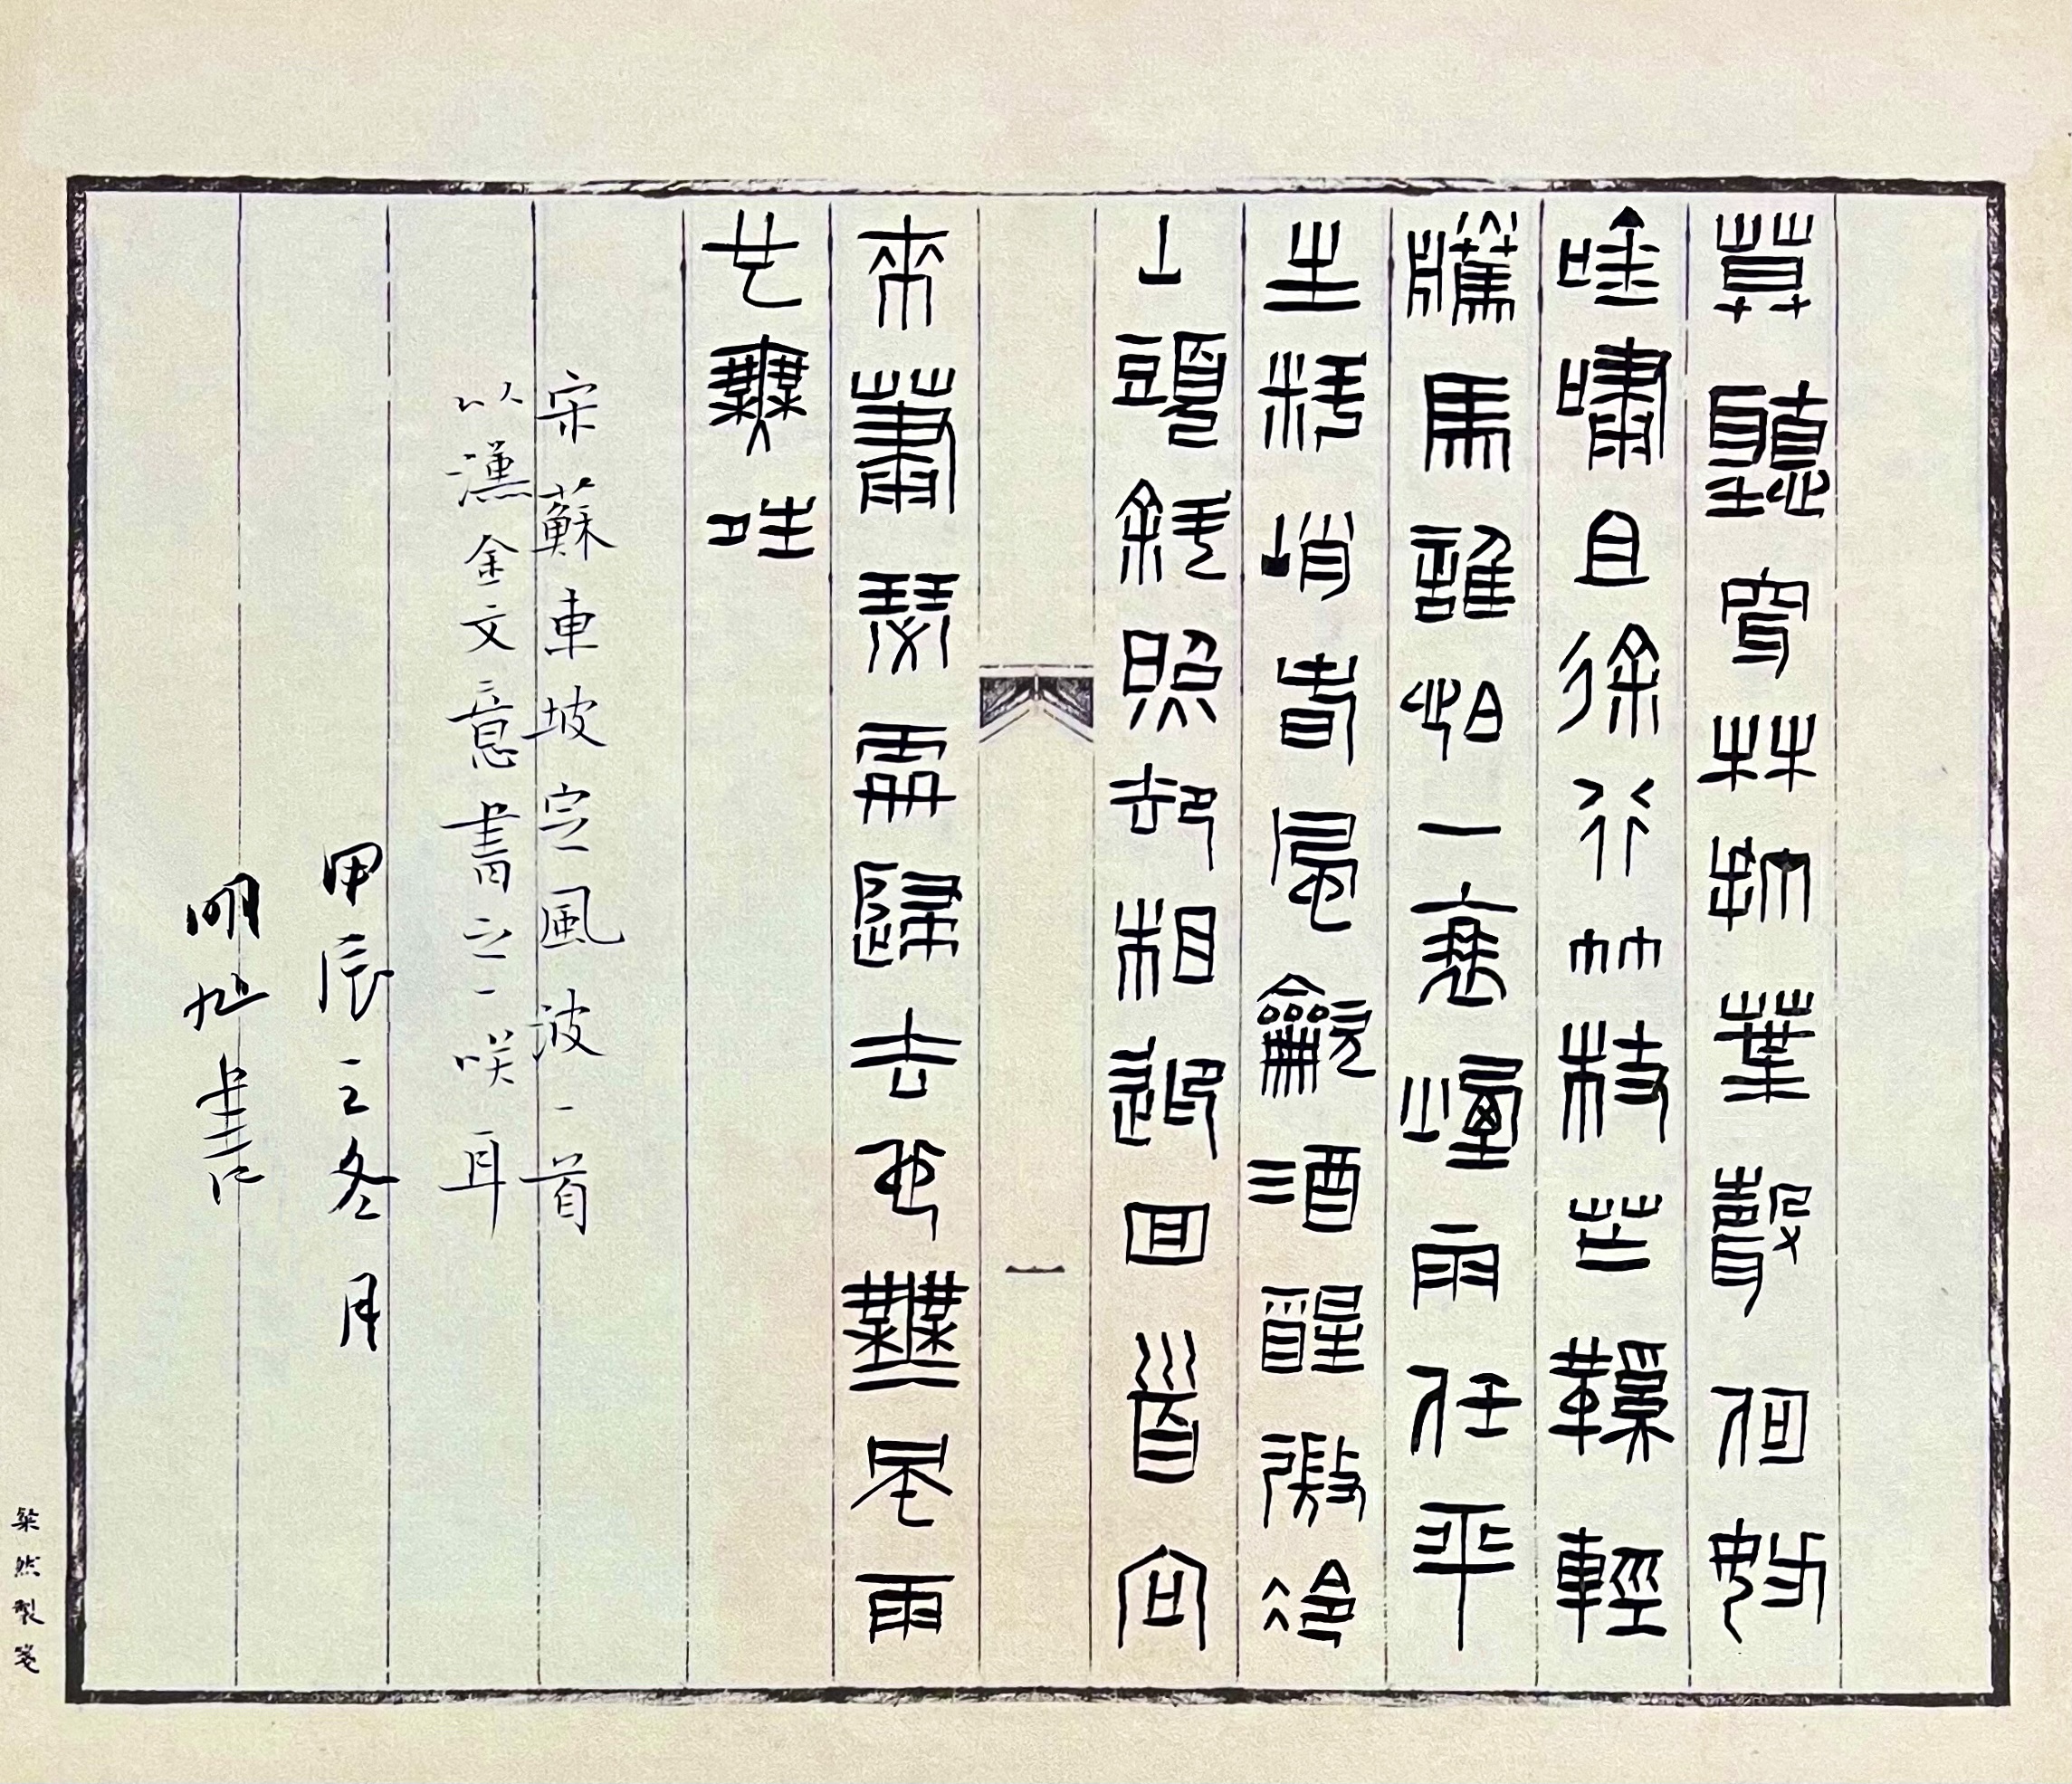 莫聽穿林打葉聲何妨
唫嘯且徐行竹杖芒鞵輕
勝馬誰怕一蓑煙雨任平
生料峭春風龡酒醒微冷
山頭斜照却相迎回首向
來蕭瑟處歸去也無風雨
也無晴
宋蘇東坡定風波一首
以漢金文意書之一咲耳
甲辰之冬月
明旭書
粲然製箋
一